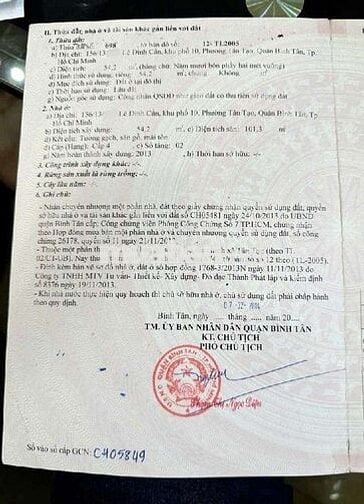 II. Thửa đất, nhà ở và tài sản khác gắn liền với đất
1. Thửa đất:
a) Thửa đất số: 698 tờ bản đồ số: 12-TL2005
b) Địa chỉ: 156/13 Lê Đình Cẩn, khu phố 10, Phường Tân Tạo, Quận Bình Tân, Tp.
Hồ Chí Minh
c) Diện tích: 54,2 m², (bằng chữ: Năm mươi bốn phẩy hai mét vuông)
d) Hình thức sử dụng: riêng: 54,2 m², chung: Không m²
đ) Mục đích sử dụng: Đất ở tại đô thị
e) Thời hạn sử dụng: Lâu dài
g) Nguồn gốc sử dụng: Công nhận QSDĐ như giao đất có thu tiền sử dụng đất
2. Nhà ở:
a) Địa chỉ: 156/13 Lê Đình Cẩn, khu phố 10, Phường Tân Tạo, Quận Bình Tân, Tp.
Hồ Chí Minh
b) Diện tích xây dựng: 54,2 m² c) Diện tích sàn: 101,3 m²
d) Kết cấu: Tường gạch, sàn gỗ, mái tôn
đ) Cấp (Hạng): Cấp 4 e) Số tầng: 02
g) Năm hoàn thành xây dựng: 2013 h) Thời hạn sở hữu: -/-
3. Công trình xây dựng khác: -/-
4. Rừng sản xuất là rừng trồng: -/-
5. Cây lâu năm: -/-
6. Ghi chú:
- Nhận chuyển nhượng một phần nhà, đất theo giấy chứng nhận quyền sử dụng đất, quyền
sở hữu nhà ở và tài sản khác gắn liền với đất số CH05481 ngày 24/10/2013 do UBND
quận Bình Tân cấp; Công chứng viên Phòng Công Chứng Số 7 TP.HCM, chứng nhận
theo Hợp đồng mua bán một phần nhà ở và chuyển nhượng quyền sử dụng đất, số công
chứng 26178, quyển số 11 ngày 21/11/20
- Thuộc một phần thửa Tân Tạo (theo TL
02/CT-UB). số 12 (TL-2005).
- Đính kèm bản vẽ sơ đồ nhà ở, đất ở số hợp đồng 1768-3/2013N ngày 11/11/2013 do
Công ty TNHH MTV Tư vấn- Thiết kế- Xây dựng- Đo đạc Thành Phát lập và kiểm định
số 8376 ngày 19/11/2013.
- Khi nhà nước thực hiện quy hoạch thì chủ sở hữu nhà ở, chủ sử dụng đất phải chấp hành
theo quy định.
Bình Tân, ngày tháng năm 20
TM. ỦY BAN NHÂN DÂN QUẬN BÌNH TÂN
KT. CHỦ TỊCH
PHÓ CHỦ TỊCH
Số vào sổ cấp GCN: CH05849